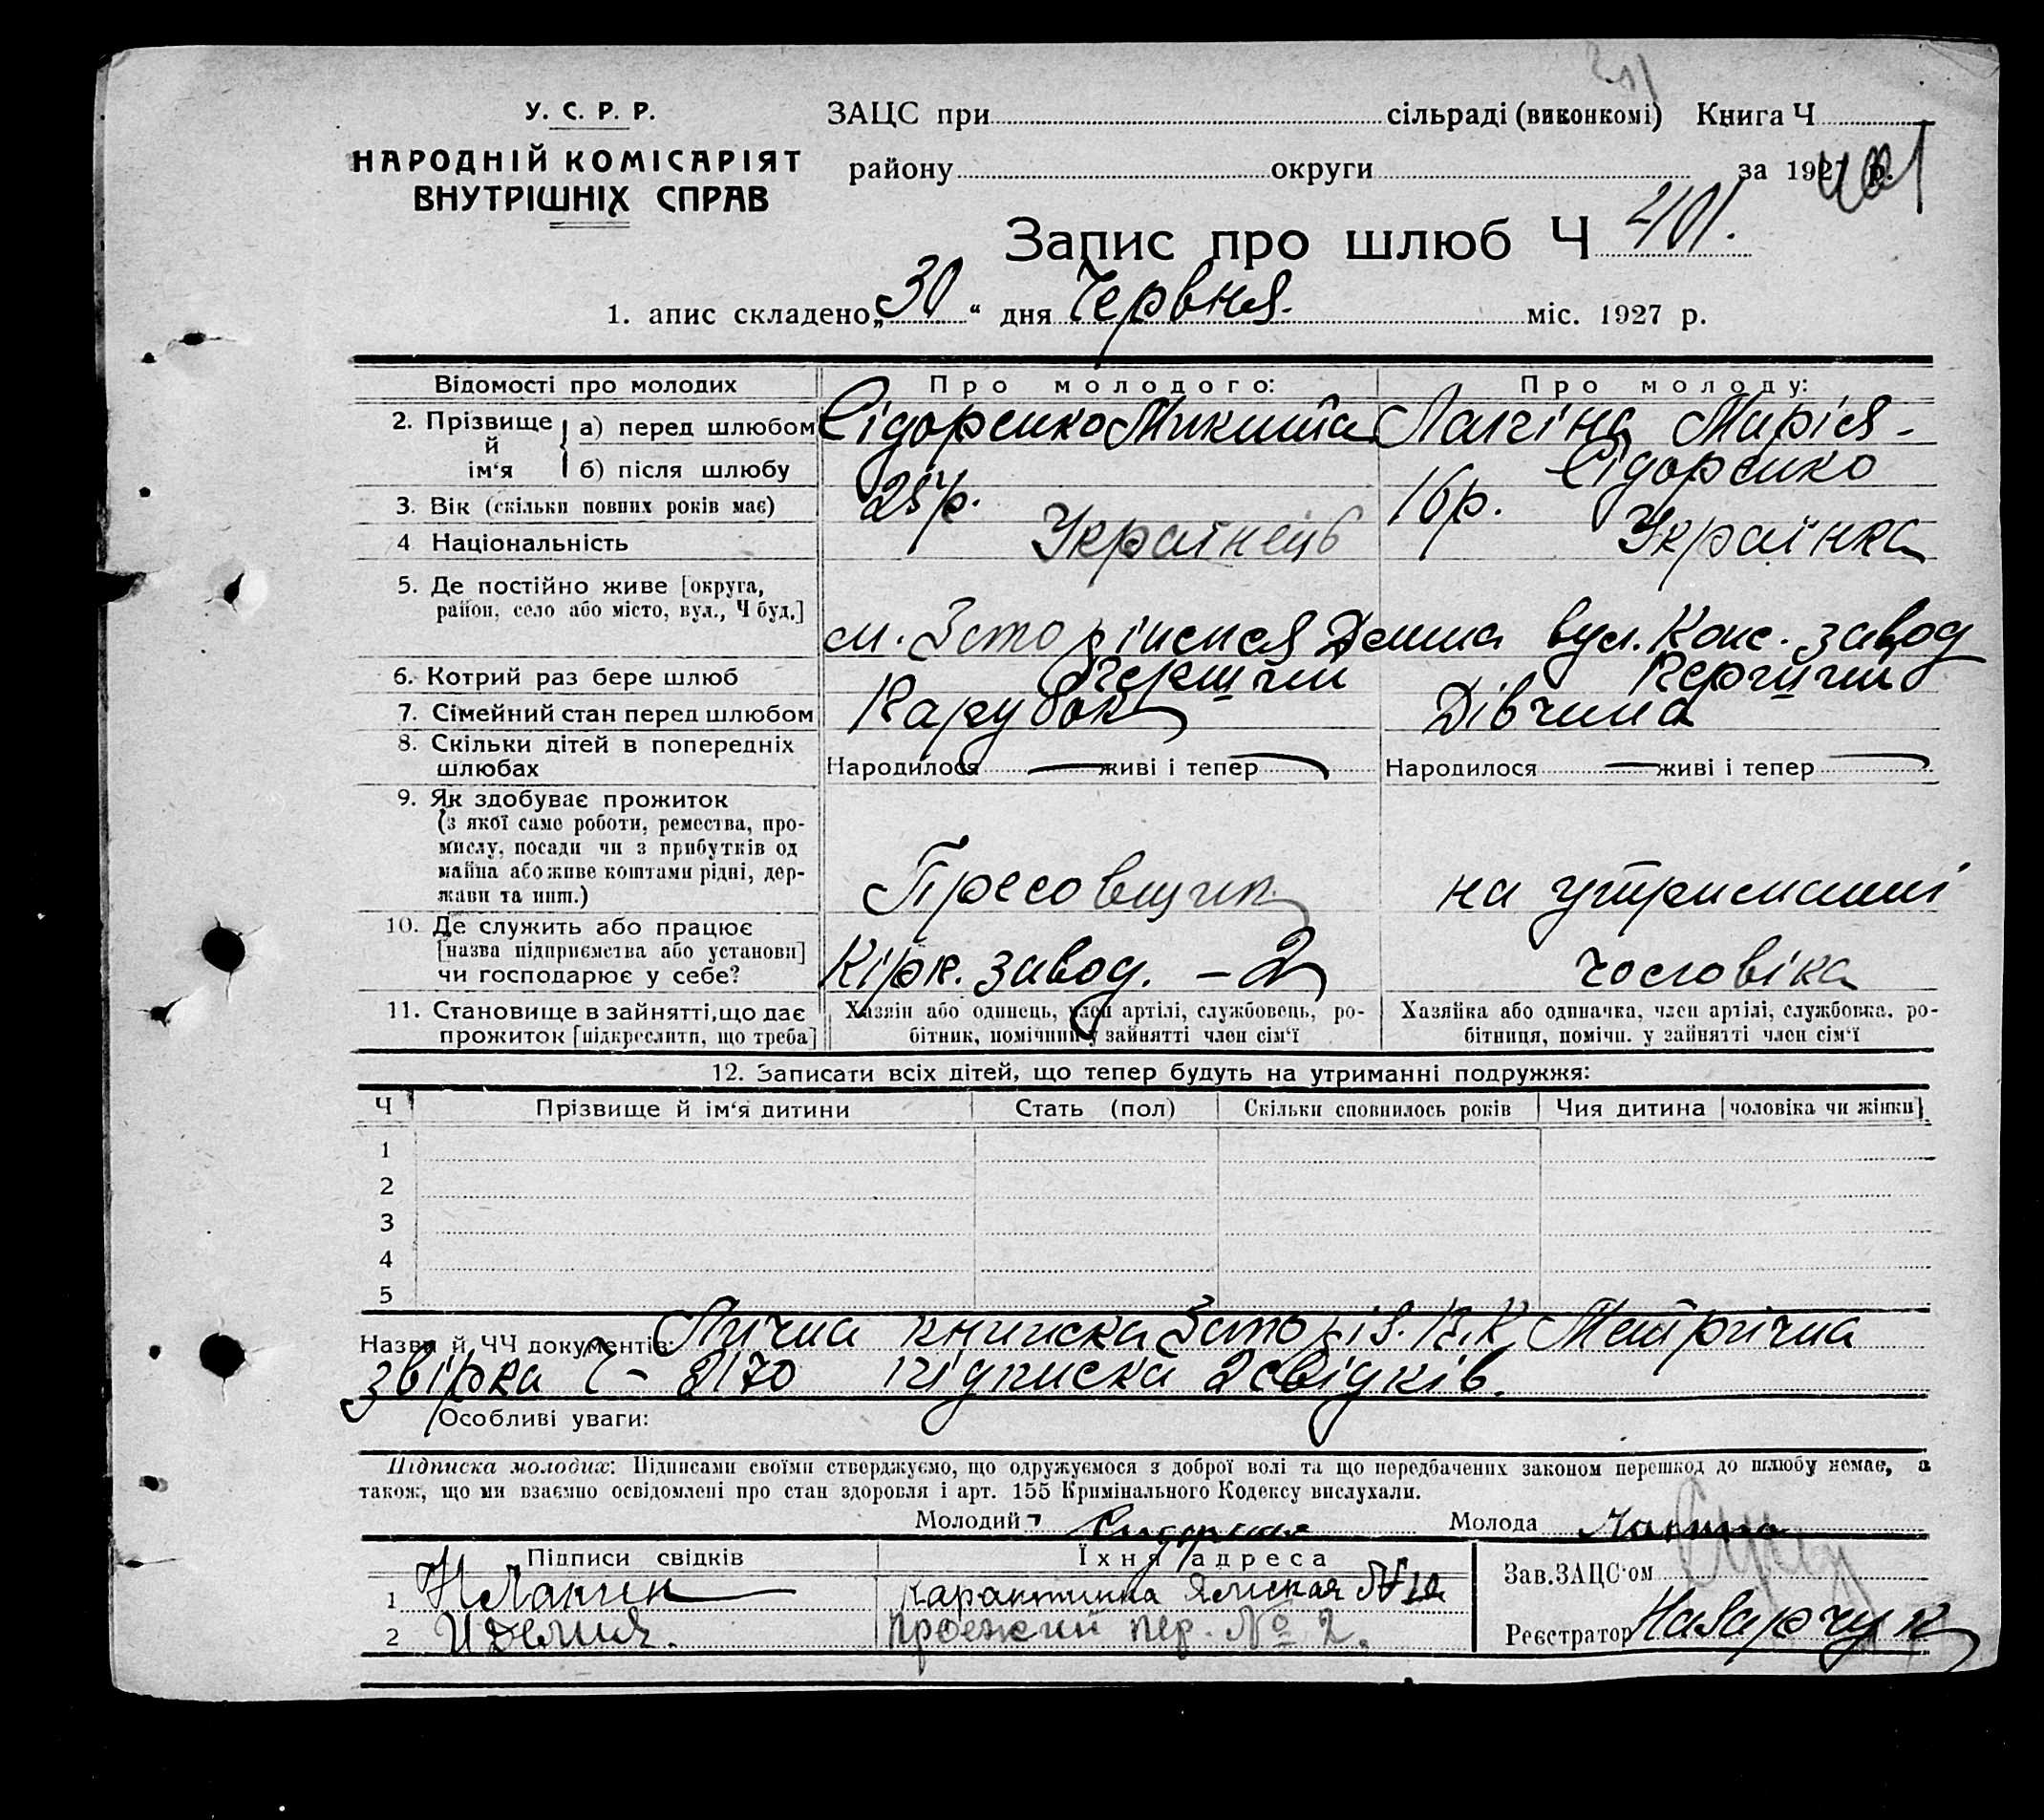 У. С. Р. Р.
НАРОДНІЙ КОМІСАРІЯТ
ВНУТРІШНІХ СПРАВ
ЗАЦС при сільраді (виконкомі) Книга Ч
району округи за 1927 р.
401
Запис про шлюб Ч 401.
1. апис складено „30“ дня Червня. міс. 1927 р.
Відомості про молодих Про молодого: Про молоду:
2. Прізвище й ім'я а) перед шлюбом Сідоренко Микита Марія -
б) після шлюбу Сідоренко
3. Вік (скільки повних років має) р. 16 р.
4 Національність Українець Українка
5. Де постійно живе [округа, район, село або місто, вул., Ч буд.]
м. вул. Конс. завод
6. Котрий раз бере шлюб Перший Перший
7. Сімейний стан перед шлюбом Парубок Дівчина
8. Скільки дітей в попередніх шлюбах Народилося — живі і тепер — Народилося — живі і тепер —
9. Як здобуває прожиток
(з якої саме роботи, ремества, про-
мислу, посади чи з прибутків од
майна або живе коштами рідні, дер-
жави та инш.)
Пресовщик на утриманні
10. Де служить або працює
[назва підприємства або установи]
чи господарює у себе?
завод. – 2 чоловіка
11. Становище в зайнятті, що дає
прожиток [підкреслити, що треба]
Хазяін або одинець, член артілі, службовець, ро-
бітник, помічник у зайнятті член сім'ї
Хазяйка або одиначка, член артілі, службовка, ро-
бітниця, помічн. у зайнятті член сім'ї
12. Записати всіх дітей, що тепер будуть на утриманні подружжя:
Ч Прізвище й ім'я дитини Стать (пол) Скільки сповнилось років Чия дитина [чоловіка чи жінки]
1
2
3
4
5
Назви й ЧЧ документів: книжка Метрична
звірка Ч – 8170 підписка 2 свідків.
Особливі уваги:
Підписка молодих: Підписами своїми стверджуємо, що одружуємося з доброї волі та що передбачених законом перешкод до шлюбу немає, а
також, що ми взаємно освідомлені про стан здоровля і арт. 155 Кримінального Кодексу вислухали.
Молодий Молода
Підписи свідків Їхня адреса Зав. ЗАЦС'ом
1 Карантинна Ямская №
2 Проезжий пер. № 2.
Реєстратор Назарчук